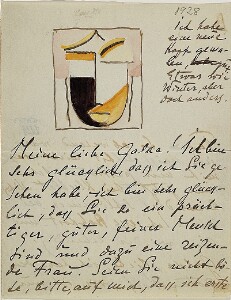 1928
Ich habe
eine neue
Kopf gema-
len,
Etwas wie
Winter, aber
doch anders.
Meine liebe Galka. Ich bin
sehr glücklich, dass ich Sie ge
sehen habe, ich bin sehr glück-
lich, dass Sie ein präch-
tiger, guter, feiner Mensch
sind und dazu eine reizen-
de Frau. Seien Sie nicht bö-
se, bitte, auf mich, dass ich erst